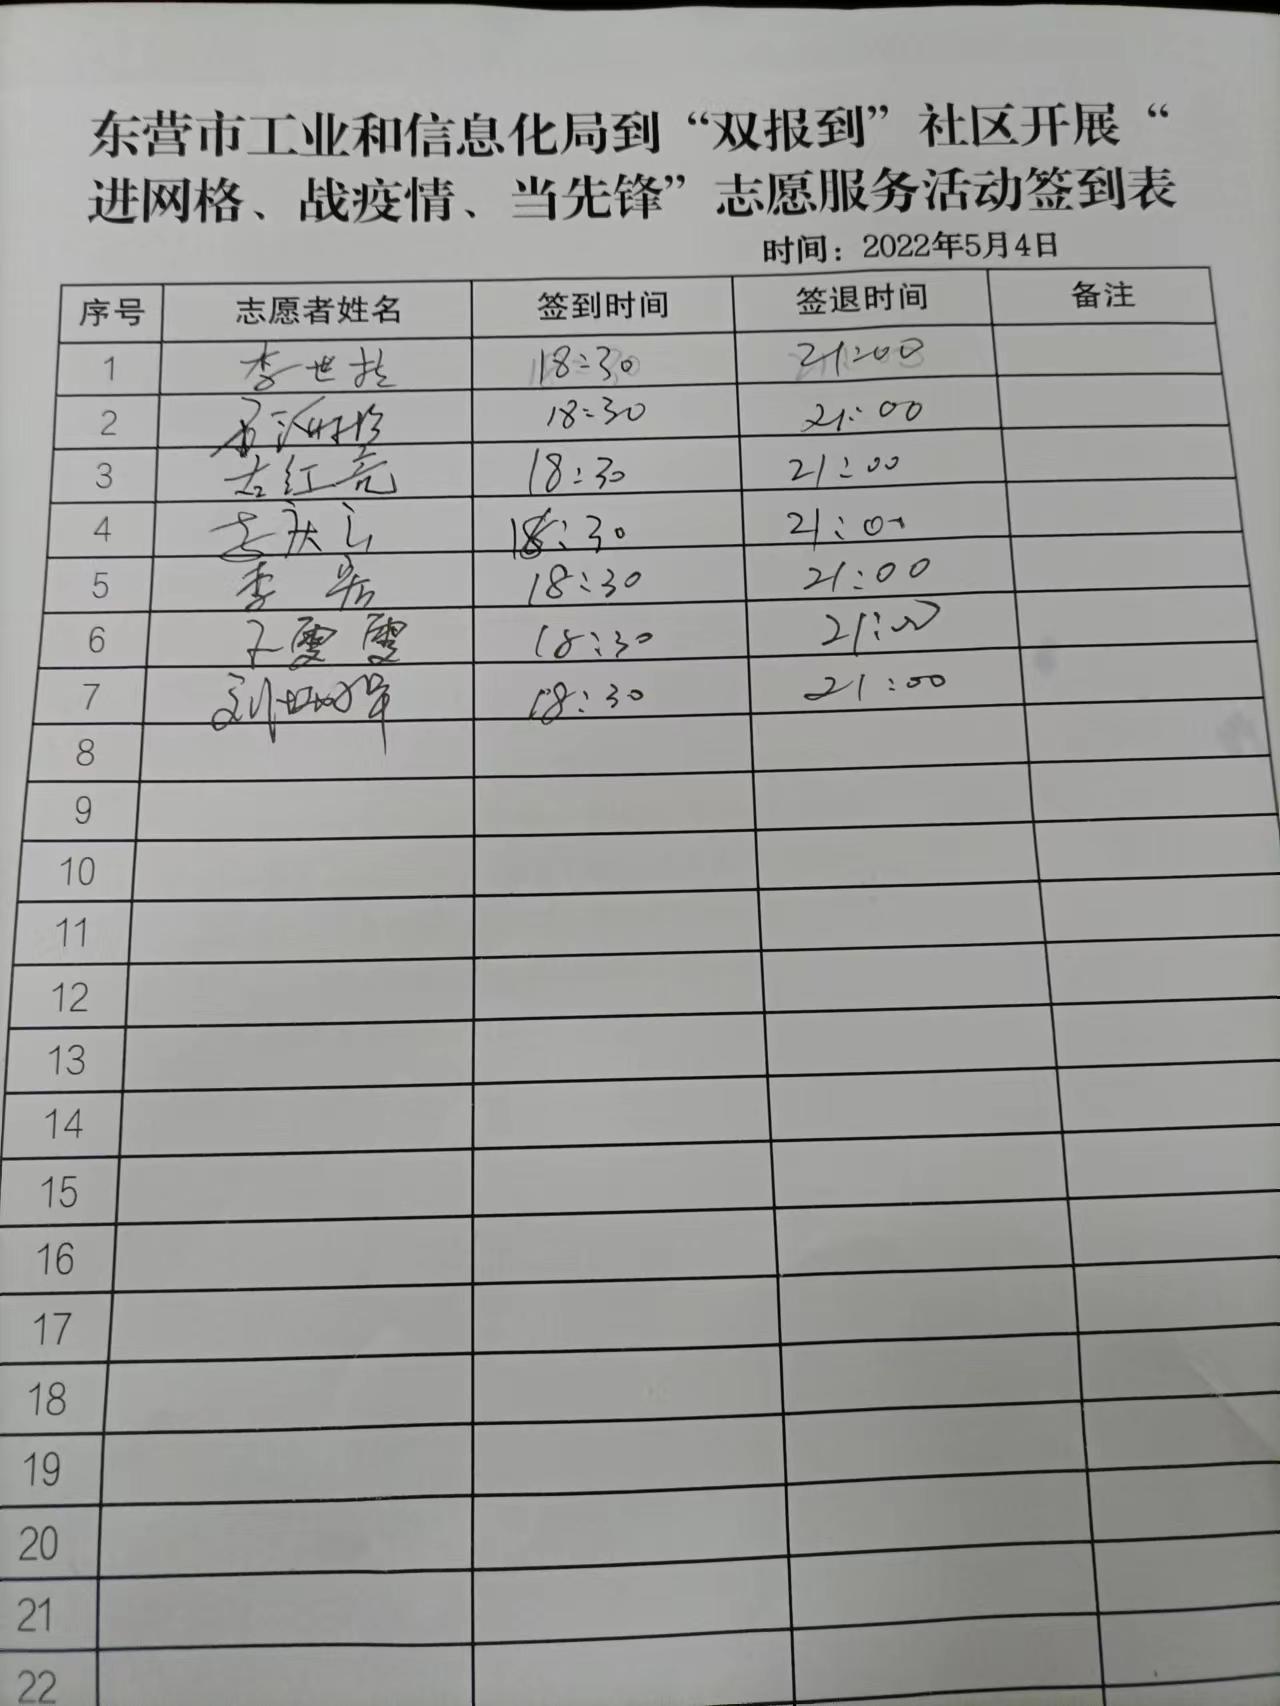 东营市工业和信息化局到“双报到”社区开展“
进网格、战疫情、当先锋”志愿服务活动签到表
时间：2022年5月4日
序号 志愿者姓名 签到时间 签退时间 备注
1 李世 18:30 21:00
2 18:30 21:00
3 红亮 18:30 21:00
4 18:30 21:00
5 李 18:30 21:00
6 王雯雯 18:30 21:00
7 刘 18:30 21:00
8
9
10
11
12
13
14
15
16
17
18
19
20
21
22